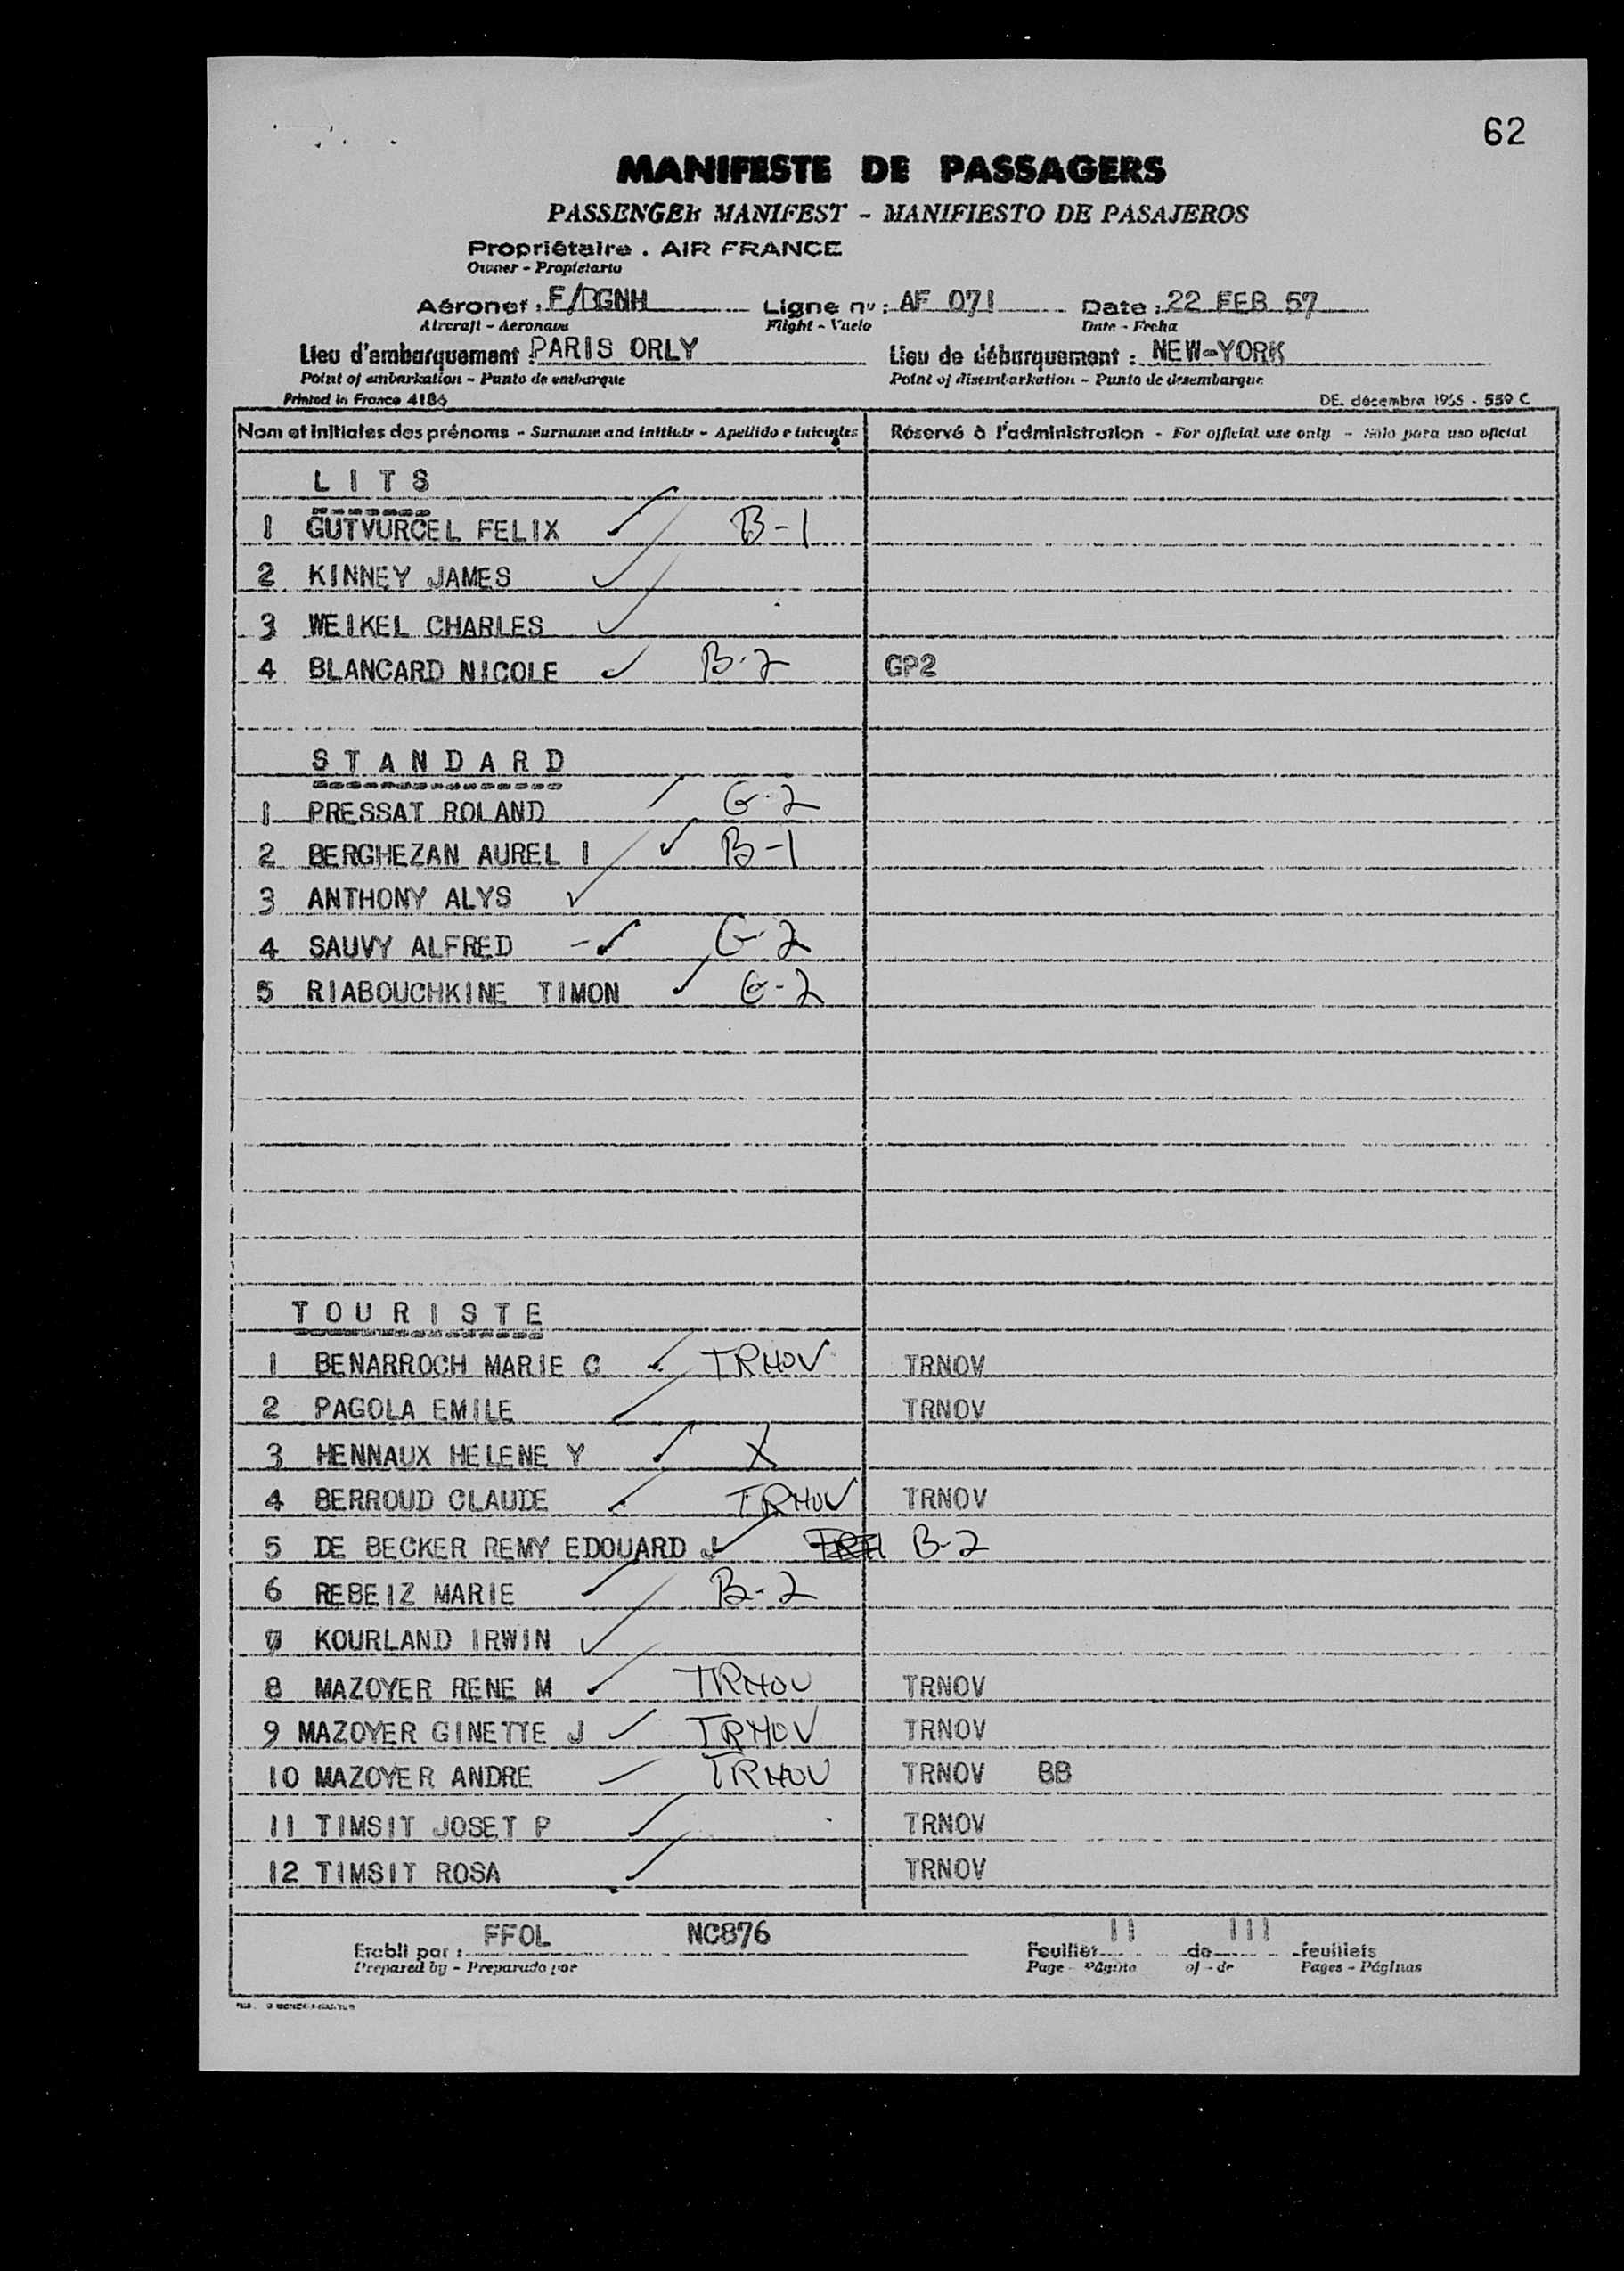 62
MANIFESTE DE PASSAGERS
PASSENGER MANIFEST - MANIFIESTO DE PASAJEROS
Propriétaire . AIR FRANCE
Owner - Propietario
Aéronef : F/BGNH Ligne no : AF 071 Date : 22 FEB 57
Aircraft - Aeronave Flight - Vuelo Date - Fecha
Lieu d'embarquement : PARIS ORLY Lieu de débarquement : NEW-YORK
Point of embarkation - Punto de embarque Point of disembarkation - Punto de desembarque
Printed in France 4186 DE. décembre 1955 - 559 C
Nom et initiales des prénoms - Surname and initials - Apellido e iniciales Réservé à l'administration - For official use only - Sólo para uso oficial
L I T S
1 GUTVURCEL FELIX B-1
2 KINNEY JAMES
3 WEIKEL CHARLES
4 BLANCARD NICOLE B-2 GP2
S T A N D A R D
1 PRESSAT ROLAND G-2
2 BERGHEZAN AUREL I B-1
3 ANTHONY ALYS
4 SAUVY ALFRED G-2
5 RIABOUCHKINE TIMON G-2
T O U R I S T E
1 BENARROCH MARIE C TRNOV TRNOV
2 PAGOLA EMILE TRNOV
3 HENNAUX HELENE Y X
4 BERROUD CLAUDE TRNOV TRNOV
5 DE BECKER REMY EDOUARD J B-2
6 REBEIZ MARIE B-2
7 KOURLAND IRWIN
8 MAZOYER RENE M TRNOV TRNOV
9 MAZOYER GINETTE J TRNOV TRNOV
10 MAZOYER ANDRE TRNOV TRNOV BB
11 TIMSIT JOSET P TRNOV
12 TIMSIT ROSA TRNOV
Etabli par : FFOL NC876 Feuillet II de III feuillets
Prepared by - Preparado por Page - Página of - de Pages - Páginas